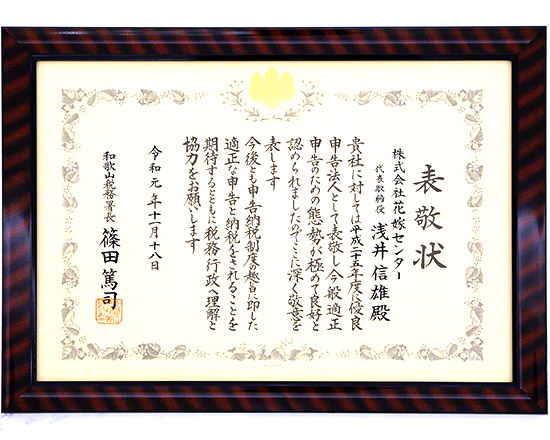 表敬状
株式会社花嫁センター
代表取締役 浅井信雄殿
貴社に対しては平成二十五年度に優良
申告法人として表敬し今般適正
申告のための態勢が極めて良好と
認められましたのでここに深く敬意を
表します
今後とも申告納税制度の趣旨に即した
適正な申告と納税をされることを
期待するとともに税務行政へ理解と
協力をお願いします
令和元年十一月十八日
和歌山税務署長 篠田篤司